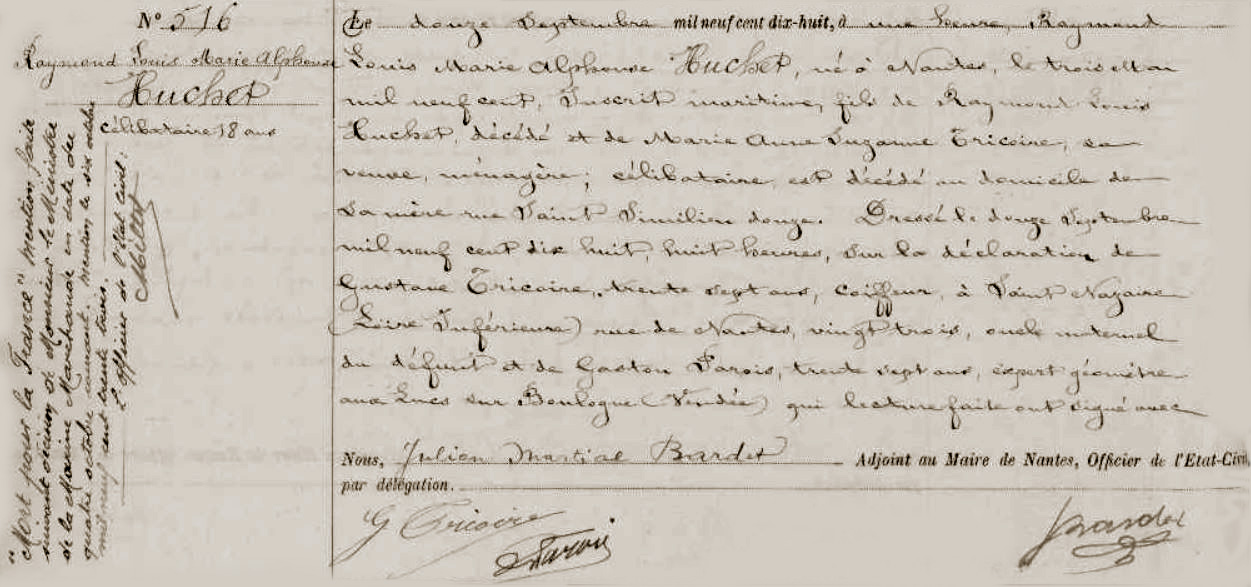 N° 516
Raymond Louis Marie Alphonse
Huchet
célibataire 18 ans
"Mort pour la France" mention faite
suivant décision de Monsieur le Ministre
de la Marine Marchande en date du
quatre octobre courant, mention le six octobre
mil neuf cent trente trois.
L'officier de l'état civil:
Millot
Le douze Septembre mil neuf cent dix-huit, à une heure, Raymond
Louis Marie Alphonse Huchet, né à Nantes, le trois Mai
mil neuf cent, Inscrit maritime, fils de Raymond Louis
Huchet, décédé et de Marie Anne Suzanne Tricoire, sa
veuve, ménagère; célibataire, est décédé au domicile de
sa mère rue Saint Similien douze. Dressé le douze Septembre
mil neuf cent dix huit, huit heures, sur la déclaration de
Gustave Tricoire, trente sept ans, coiffeur, à Saint Nazaire
(Loire Inférieure) rue de Nantes, vingt trois, oncle maternel
du défunt et de Gaston Parois, trente sept ans, expert géomètre
aux Lucs sur Boulogne (Vendée) qui lecture faite ont signé avec
Nous, Julien Martial Bardet Adjoint au Maire de Nantes, Officier de l'Etat-Civil,
par délégation.
G Tricoire
Parois
Bardet